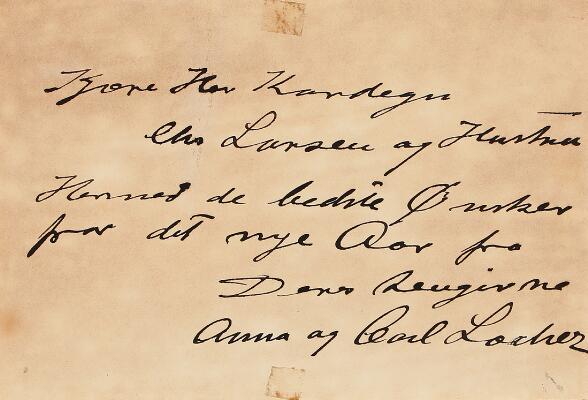 Kjære Her Kordegn
Chr Larsen og Hustru
Hermed de bedste Ønsker
for det nye Aar fra
Deres hengivne
Anna og Carl Locher